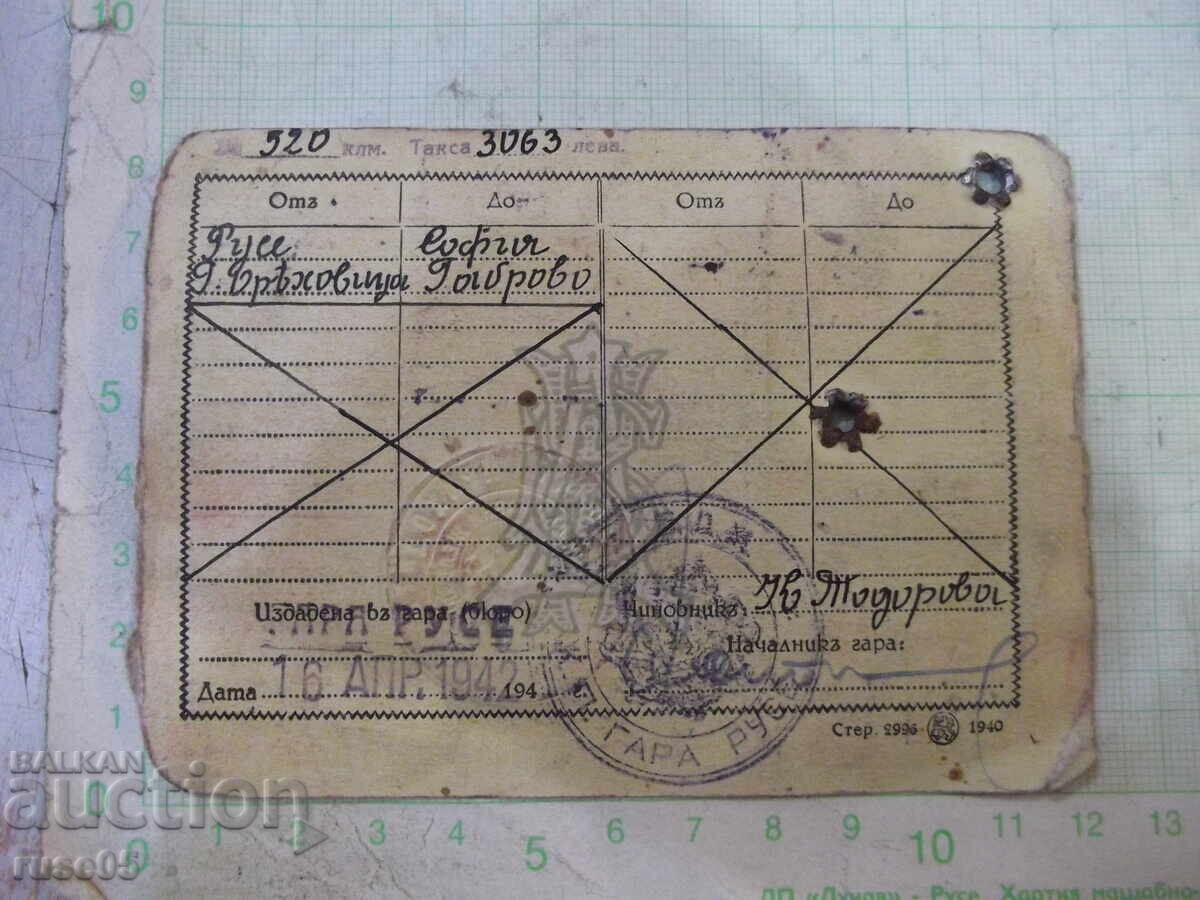 520 клм. Такса 3063 лева.
Отъ До Отъ До
Русе София
Г. Орѣховица Габрово
Издадена въ гара (бюро)
ГАРА РУСЕ
Чиновникъ: Ив Тодорова
Началникъ гара:
Дата 16 АПР. 1942 194 г.
ГАРА РУСЕ
Стер. 2996 1940
BALKAN
auction
ruse05
10
9
8
7
6
5
4
3
2
1
0
0 1 2 3 4 5 6 7 8 9 10 11 12 13
ДП «Дунав» - Русе. Хартия мащабно-